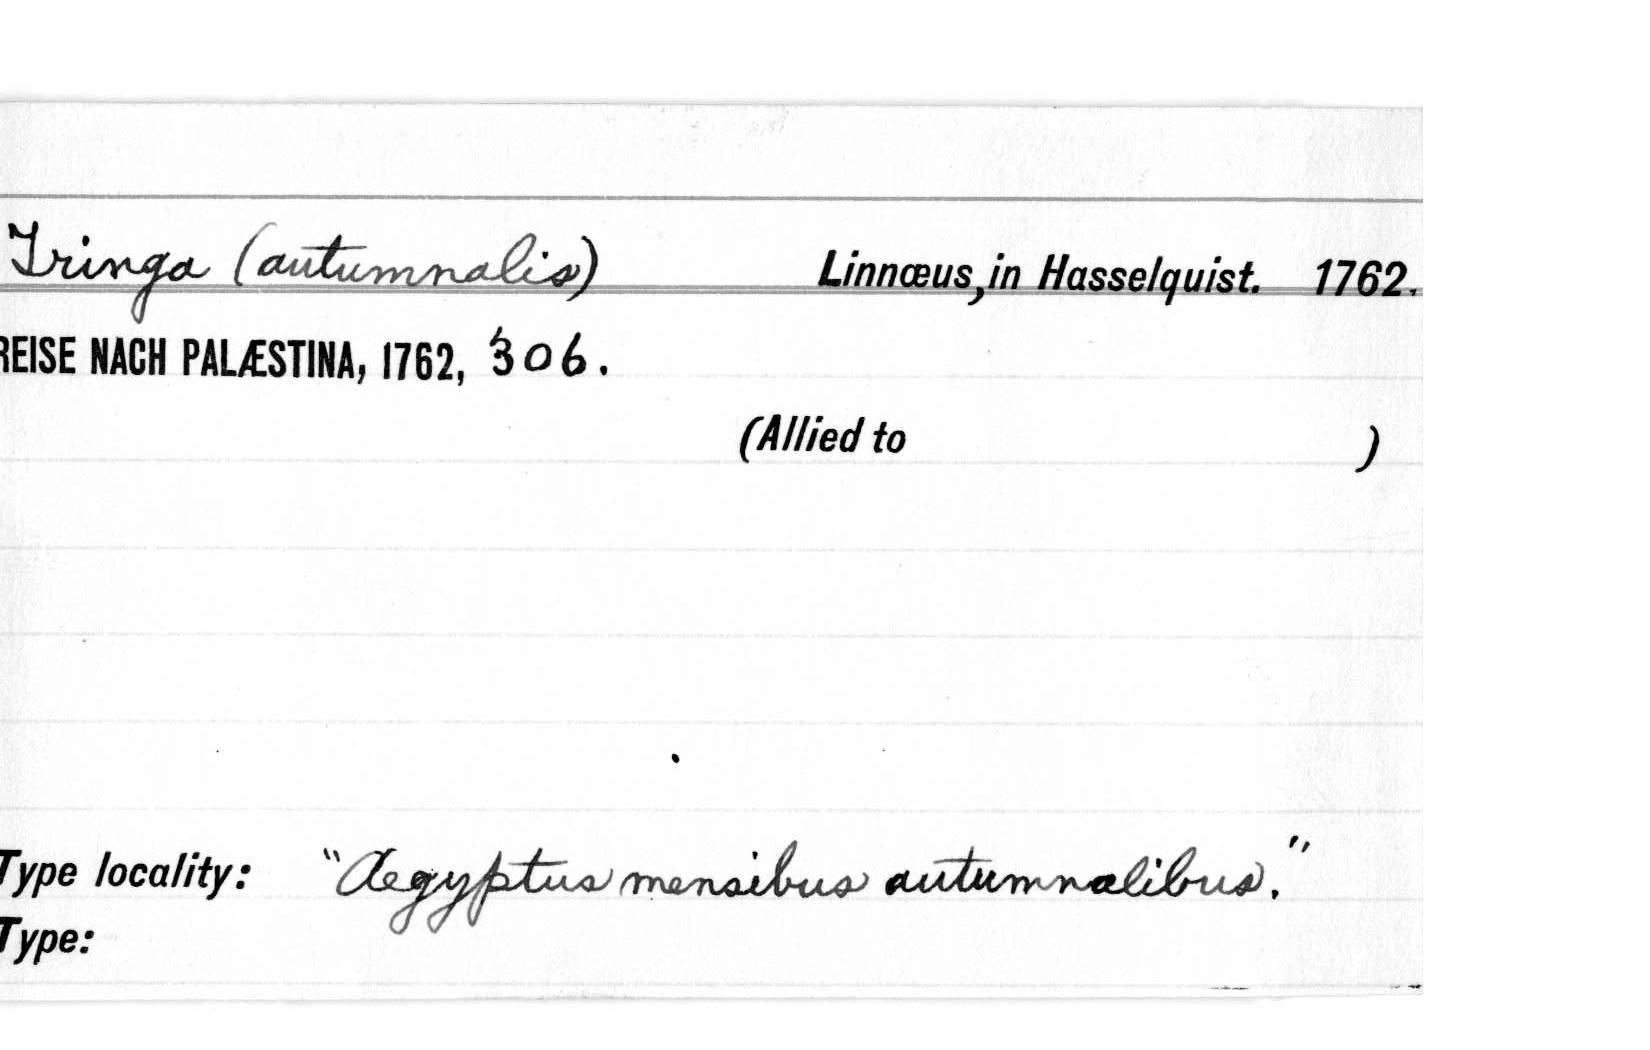 Tringa (autumnalis) Linnœus, in Hasselquist. 1762.
REISE NACH PALÆSTINA, 1762, 306.
(Allied to )
Type locality: "Aegyptus mensibus autumnalibus."
Type: